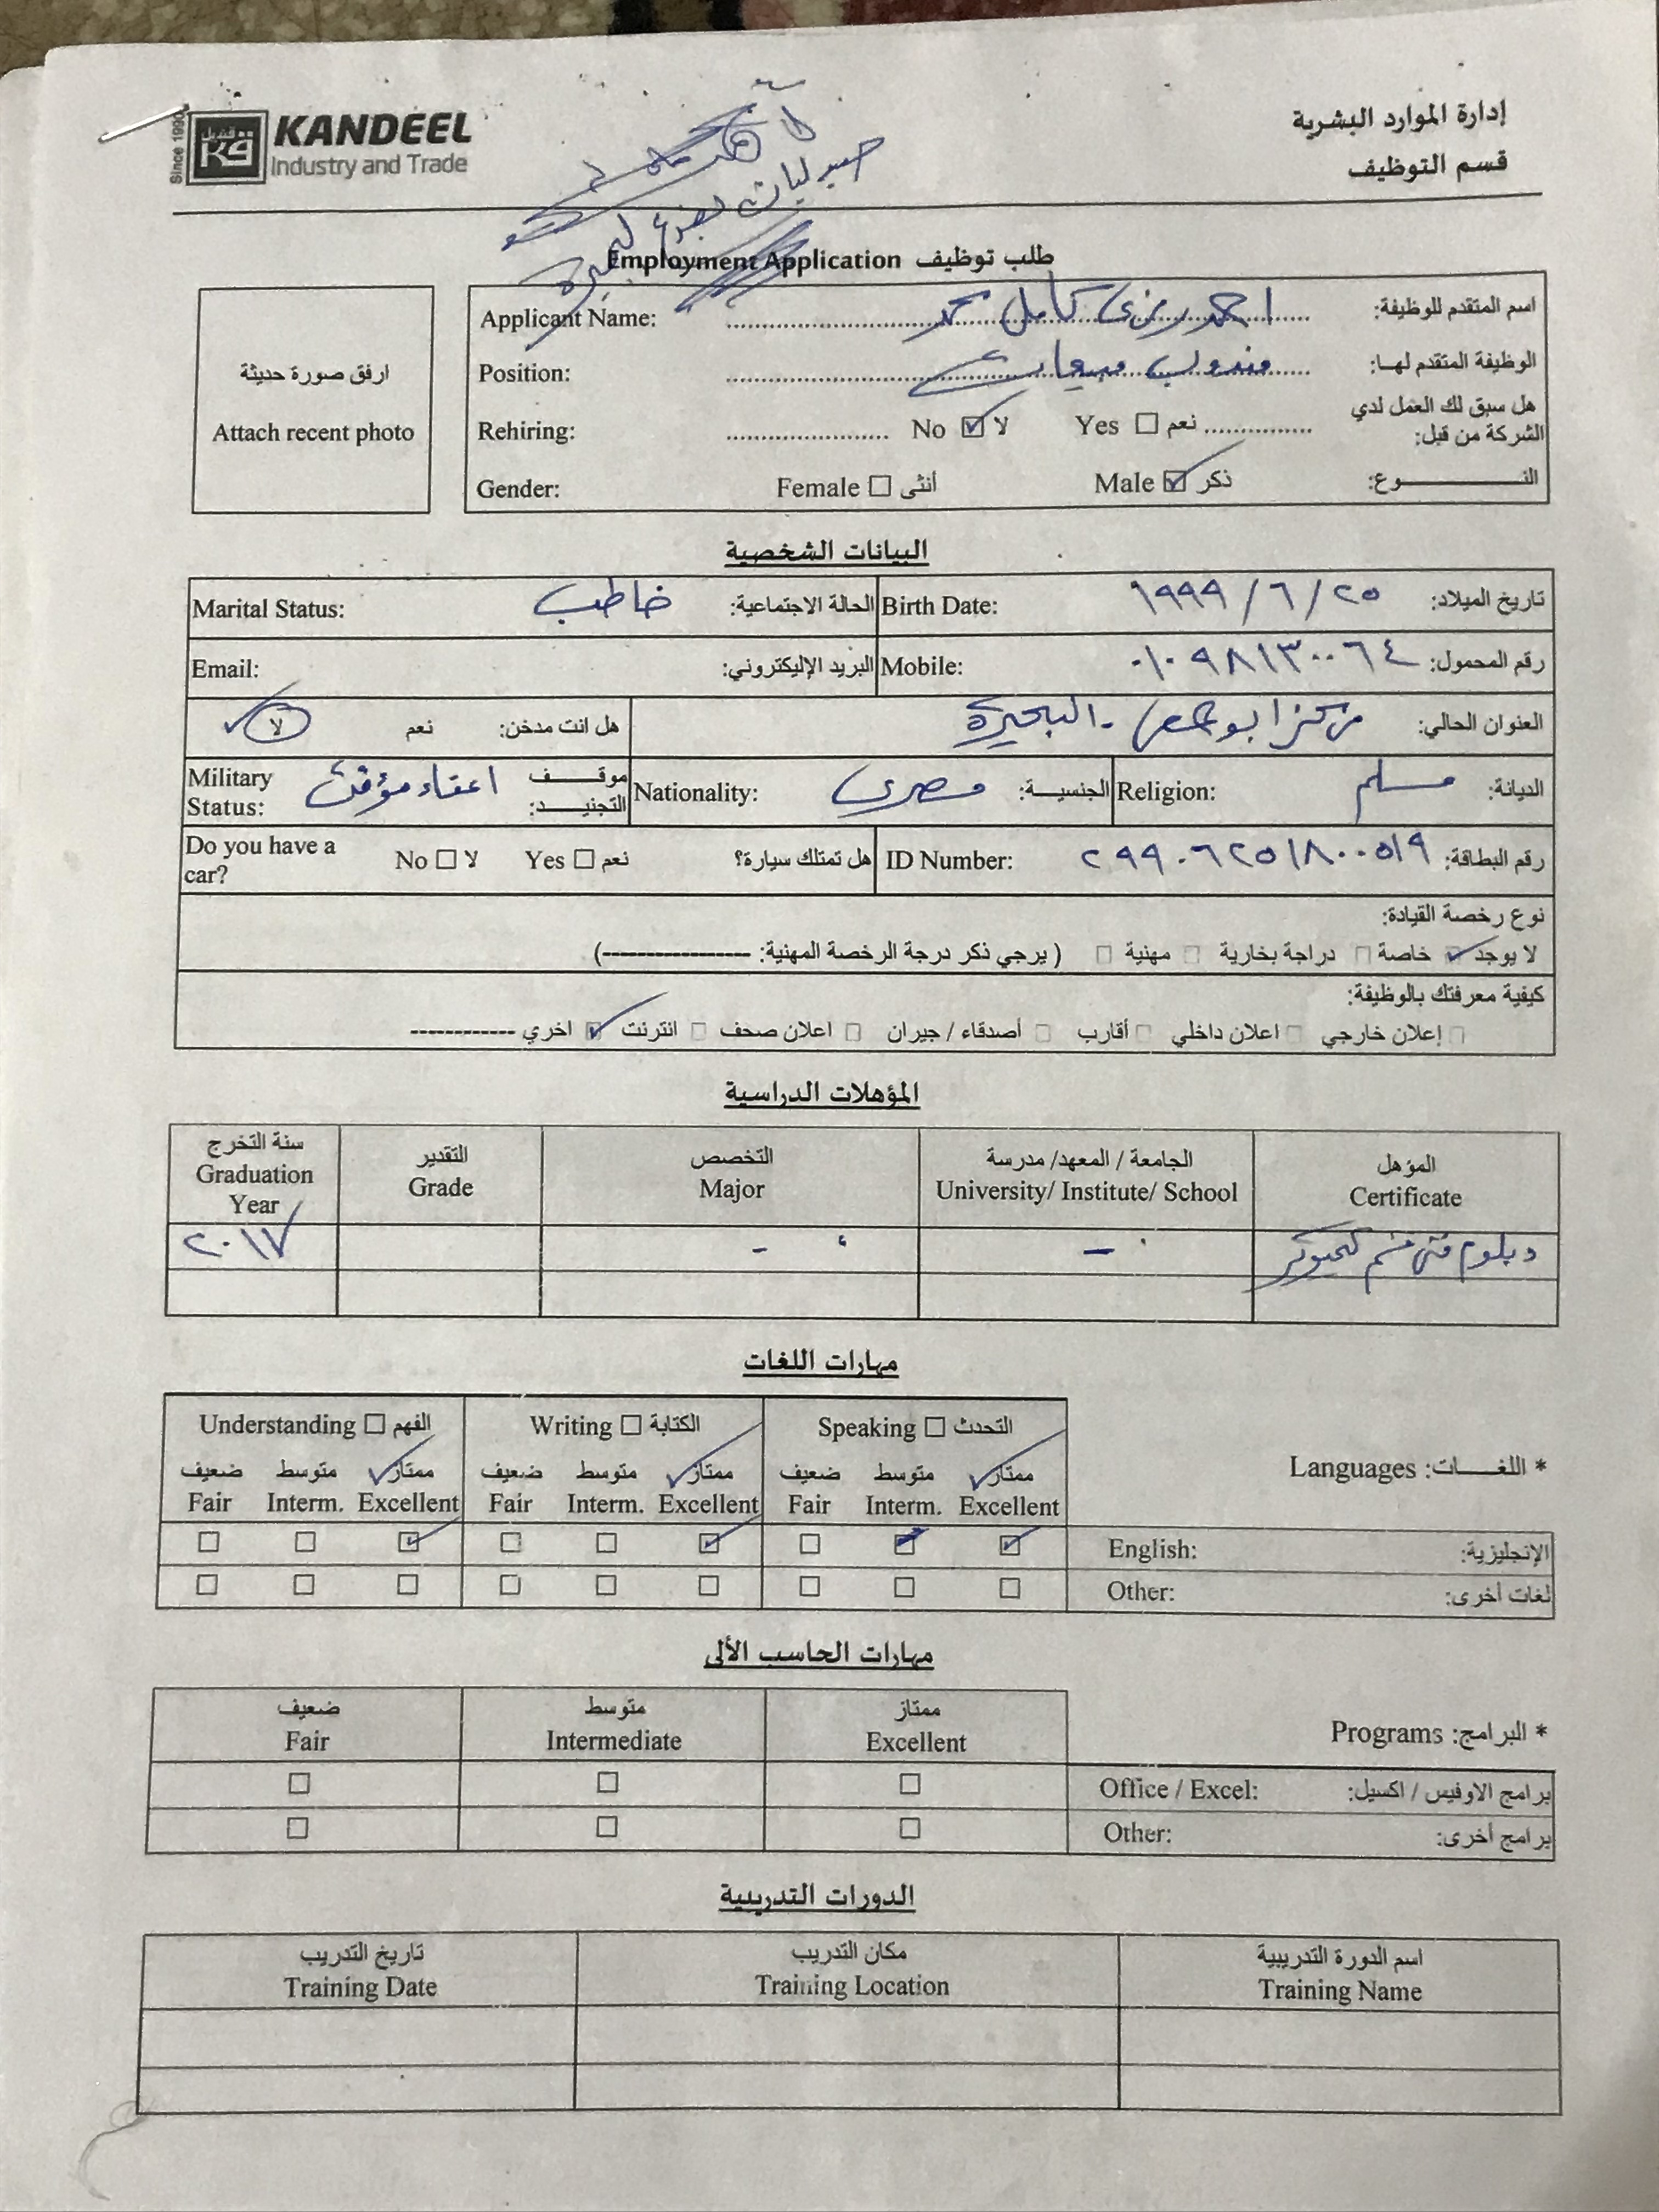 Since 1990
KANDEEL
Industry and Trade
إدارة الموارد البشرية
قسم التوظيف
صيدليات بفرع البحيرة
Employment Application طلب توظيف
ارفق صورة حديثة
Attach recent photo
Applicant Name: احمد رمزى كامل محمد اسم المتقدم للوظيفة:
Position: مندوب مبيعات الوظيفة المتقدم لهـا:
Rehiring: No ☑ لا Yes ☐ نعم هل سبق لك العمل لدي الشركة من قبل:
Gender: Female ☐ أنثى Male ☑ ذكر النـــــــوع:
البيانات الشخصية
تاريخ الميلاد: ٢٥ / ٦ / ١٩٩٩ Birth Date: الحالة الاجتماعية: خاطب Marital Status:
رقم المحمول: ٠١٠٩٨١٣٠٠٦٤ Mobile: البريد الإليكتروني: Email:
العنوان الحالي: مركز ابو حمص - البحيرة هل انت مدخن: نعم لا
الديانة: مسلم Religion: الجنسيــة: مصرى Nationality: موقــــف التجنيــد: اعفاء مؤقت Military Status:
رقم البطاقة: ٢٩٩٠٦٢٥١٨٠٠٥١٩ ID Number: هل تمتلك سيارة؟ نعم ☐ Yes لا ☐ No Do you have a car?
نوع رخصة القيادة:
لا يوجد ☑ خاصة ☐ دراجة بخارية ☐ مهنية ☐ ( يرجي ذكر درجة الرخصة المهنية: -----------------)
كيفية معرفتك بالوظيفة:
☐ إعلان خارجي ☐ اعلان داخلي ☐ أقارب ☐ أصدقاء / جيران ☐ اعلان صحف ☐ انترنت ☑ اخري ------------
المؤهلات الدراسية
المؤهل Certificate الجامعة / المعهد/ مدرسة University/ Institute/ School التخصص Major التقدير Grade سنة التخرج Graduation Year
دبلوم فنى قسم كمبيوتر - - ٢٠١٧
مهارات اللغات
* اللغـــات: Languages
التحدث ☐ Speaking الكتابة ☐ Writing الفهم ☐ Understanding
ممتاز متوسط ضعيف ممتاز متوسط ضعيف ممتاز متوسط ضعيف
Excellent Interm. Fair Excellent Interm. Fair Excellent Interm. Fair
الإنجليزية: English:
لغات أخرى: Other:
مهارات الحاسب الألى
* البرامج: Programs
ممتاز متوسط ضعيف
Excellent Intermediate Fair
برامج الاوفيس / اكسيل: Office / Excel:
برامج أخرى: Other:
الدورات التدريبية
اسم الدورة التدريبية مكان التدريب تاريخ التدريب
Training Name Training Location Training Date